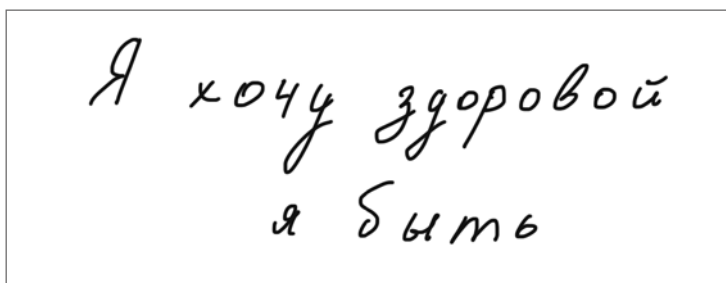 Я хочу здоровой
я быть